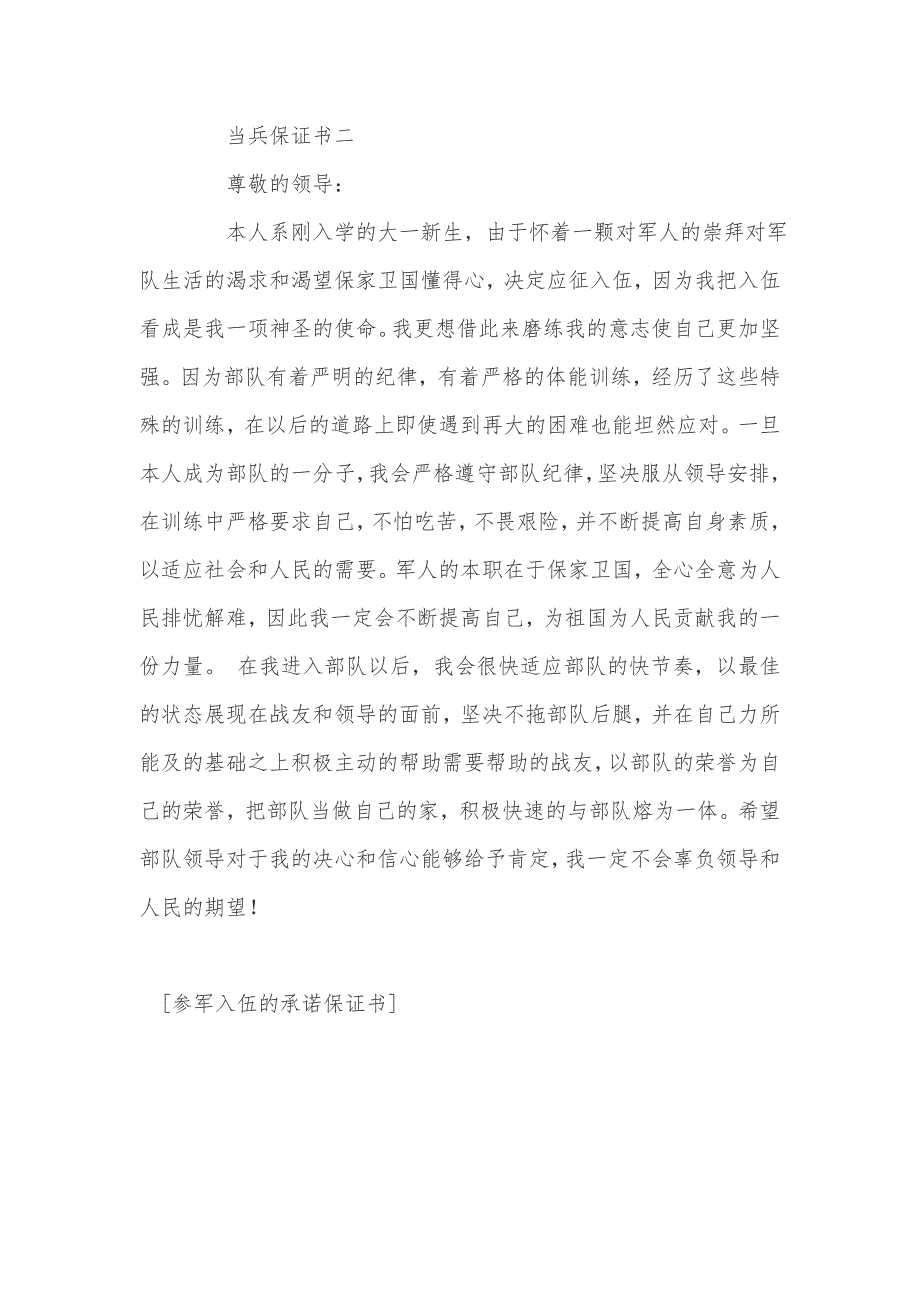 当兵保证书二
尊敬的领导：
本人系刚入学的大一新生，由于怀着一颗对军人的崇拜对军
队生活的渴求和渴望保家卫国懂得心，决定应征入伍，因为我把入伍
看成是我一项神圣的使命。我更想借此来磨练我的意志使自己更加坚
强。因为部队有着严明的纪律，有着严格的体能训练，经历了这些特
殊的训练，在以后的道路上即使遇到再大的困难也能坦然应对。一旦
本人成为部队的一分子，我会严格遵守部队纪律，坚决服从领导安排，
在训练中严格要求自己，不怕吃苦，不畏艰险，并不断提高自身素质，
以适应社会和人民的需要。军人的本职在于保家卫国，全心全意为人
民排忧解难，因此我一定会不断提高自己，为祖国为人民贡献我的一
份力量。 在我进入部队以后，我会很快适应部队的快节奏，以最佳
的状态展现在战友和领导的面前，坚决不拖部队后腿，并在自己力所
能及的基础之上积极主动的帮助需要帮助的战友，以部队的荣誉为自
己的荣誉，把部队当做自己的家，积极快速的与部队熔为一体。希望
部队领导对于我的决心和信心能够给予肯定，我一定不会辜负领导和
人民的期望！
[参军入伍的承诺保证书]